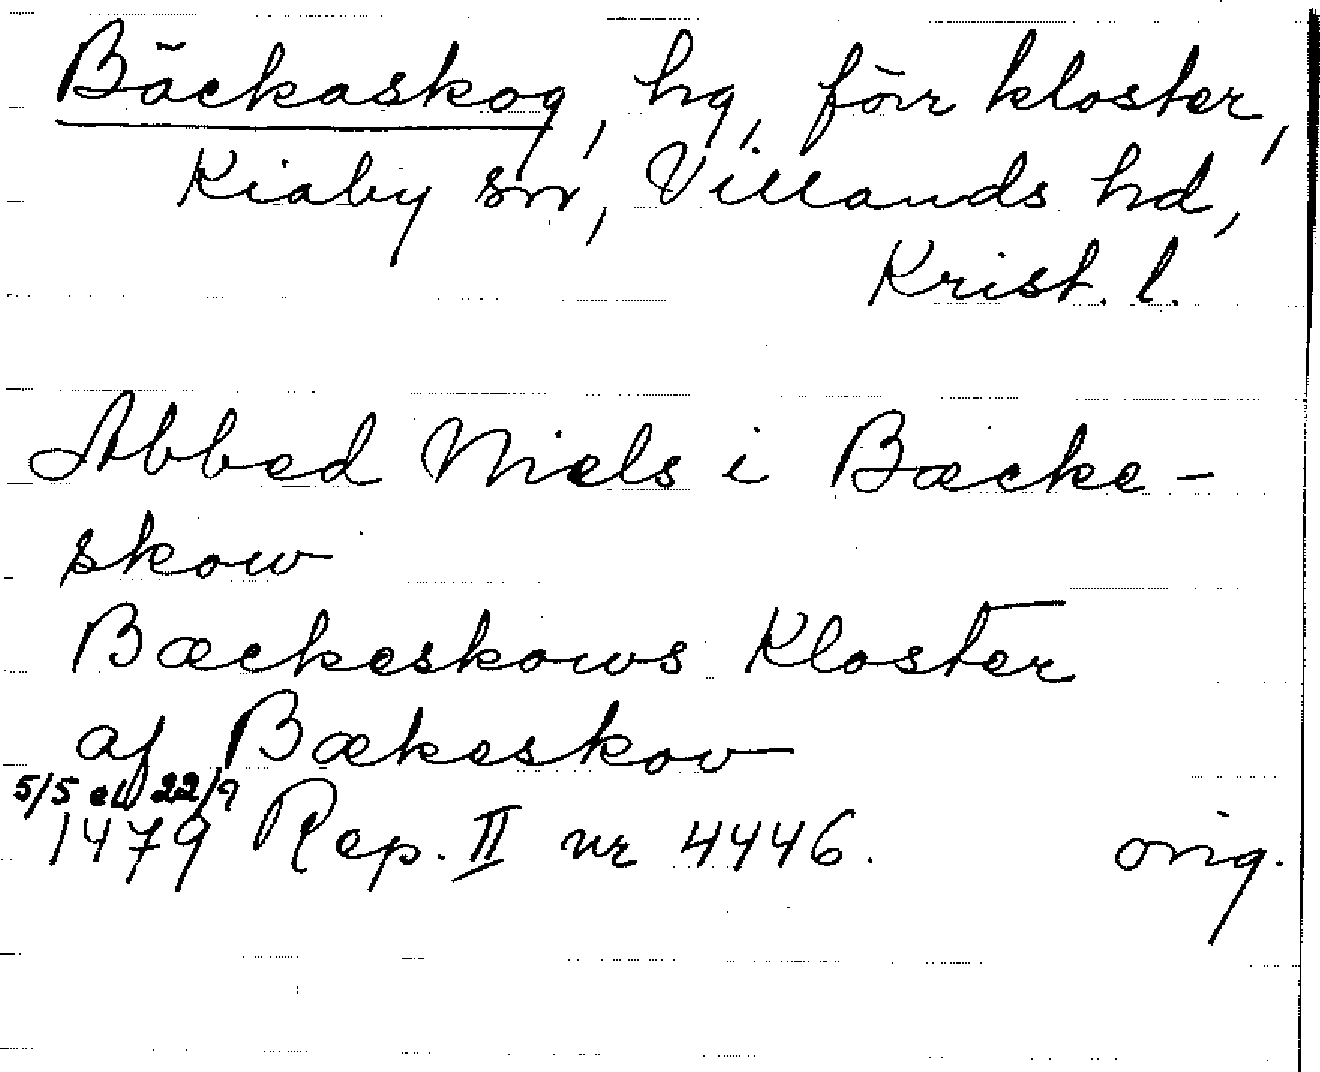 Bäckaskog, hg, förr kloster,
Kiaby sn, Villands hd,
Krist. l.
Abbed Niels i Bæcke-
skow
Bæckeskows Kloster
af Bækeskov
5/5 el 22/9
1479 Rep. II nr 4446. orig.